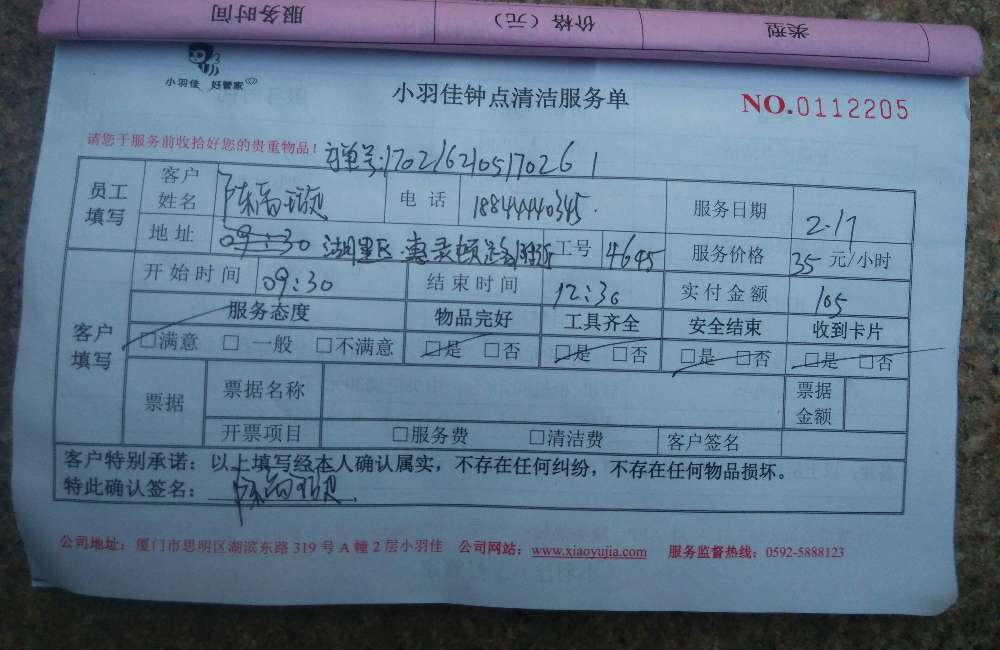 服务时间 价格（元） 类型
小羽佳 好管家
小羽佳钟点清洁服务单
NO.0112205
请您于服务前收拾好您的贵重物品！ 单号:170216210517026 1
员工填写 客户姓名 电话 18844440345. 服务日期 2.17
地址 09:30 湖里区 工号 4645 服务价格 35 元/小时
客户填写 开始时间 09:30 结束时间 12:30 实付金额 105
服务态度 物品完好 工具齐全 安全结束 收到卡片
□满意 □一般 □不满意 □是 □否 □是 □否 □是 □否 □是 □否
票据 票据名称 票据金额
开票项目 □服务费 □清洁费 客户签名
客户特别承诺：以上填写经本人确认属实，不存在任何纠纷，不存在任何物品损坏。
特此确认签名：
公司地址：厦门市思明区湖滨东路 319 号 A 幢 2 层小羽佳 公司网站：www.xiaoyujia.com 服务监督热线：0592-5888123